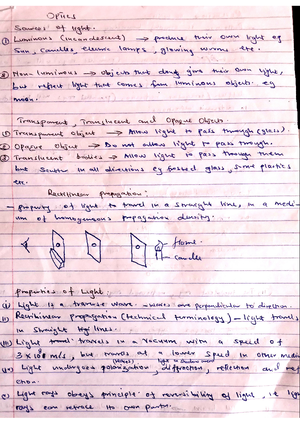 Optics
Sources of light.
① Luminous (incandescent) → produce their own light eg
Sun, candles, electric lamps, glowing worms etc.
② Non luminous → objects that don't give their own light,
but reflect light that comes from luminous objects. eg
moon.
Transparent, Translucent and Opaque Objects
① Transparent Object → Allow light to pass through (glass).
② Opaque Object → Do not allow light to pass through.
③ Translucent bodies → Allow light to pass through them
but in all directions eg glass, some plastics
etc.
Rectilinear propagation.
- property of light to travel in a straight line, in a medi-
um of homogeneous propagation density.
flame.
candle
Properties of Light.
(i) Light is a wave - waves are perpendicular to direction.
(ii) Rectilinear Propagation (technical terminology) - light travels
in straight lines.
(iii) Light travels in a vacuum with a speed of
3×10⁸ m/s, but travels at a lower speed in other media
(iv) Light undergoes polarization, diffraction, reflection and ref
ction.
(v) Light rays obeys principle of reversibility of light, ie light
rays can retrace its own path.